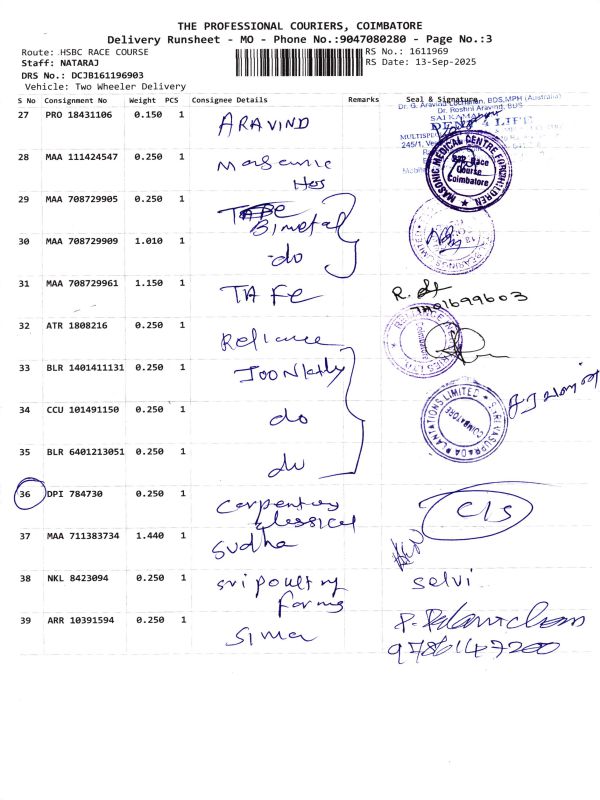 THE PROFESSIONAL COURIERS, COIMBATORE
Delivery Runsheet - MO - Phone No.:9047080280 - Page No.:3
Route: HSBC RACE COURSE
RS No.: 1611969
Staff: NATARAJ
RS Date: 13-Sep-2025
DRS No.: DCJB161196903
Vehicle: Two Wheeler Delivery
S No Consignment No Weight PCS Consignee Details Remarks Seal & Signature
Dr. G. Aravind BDS,MPH (Australia)
Dr. Roshni Aravind, BUS
27 PRO 18431106 0.150 1 ARAVIND
DENT 4 LIFE
28 MAA 111424547 0.250 1
Hos
MASONIC MEDICAL CENTRE FOR CHILDREN
Race Course
Coimbatore
29 MAA 708729905 0.250 1
Bimetal
30 MAA 708729909 1.010 1 do
BEARINGS LIMITED
31 MAA 708729961 1.150 1 TAFE R.
32 ATR 1808216 0.250 1 Reliance
33 BLR 1401411131 0.250 1
34 CCU 101491150 0.250 1 do
PLANTATIONS LIMITED
COIMBATORE
35 BLR 6401213051 0.250 1 do
36 DPI 784730 0.250 1 C/S
37 MAA 711383734 1.440 1 Sudha
38 NKL 8423094 0.250 1 Sri poultry Selvi
farms
39 ARR 10391594 0.250 1 Sima